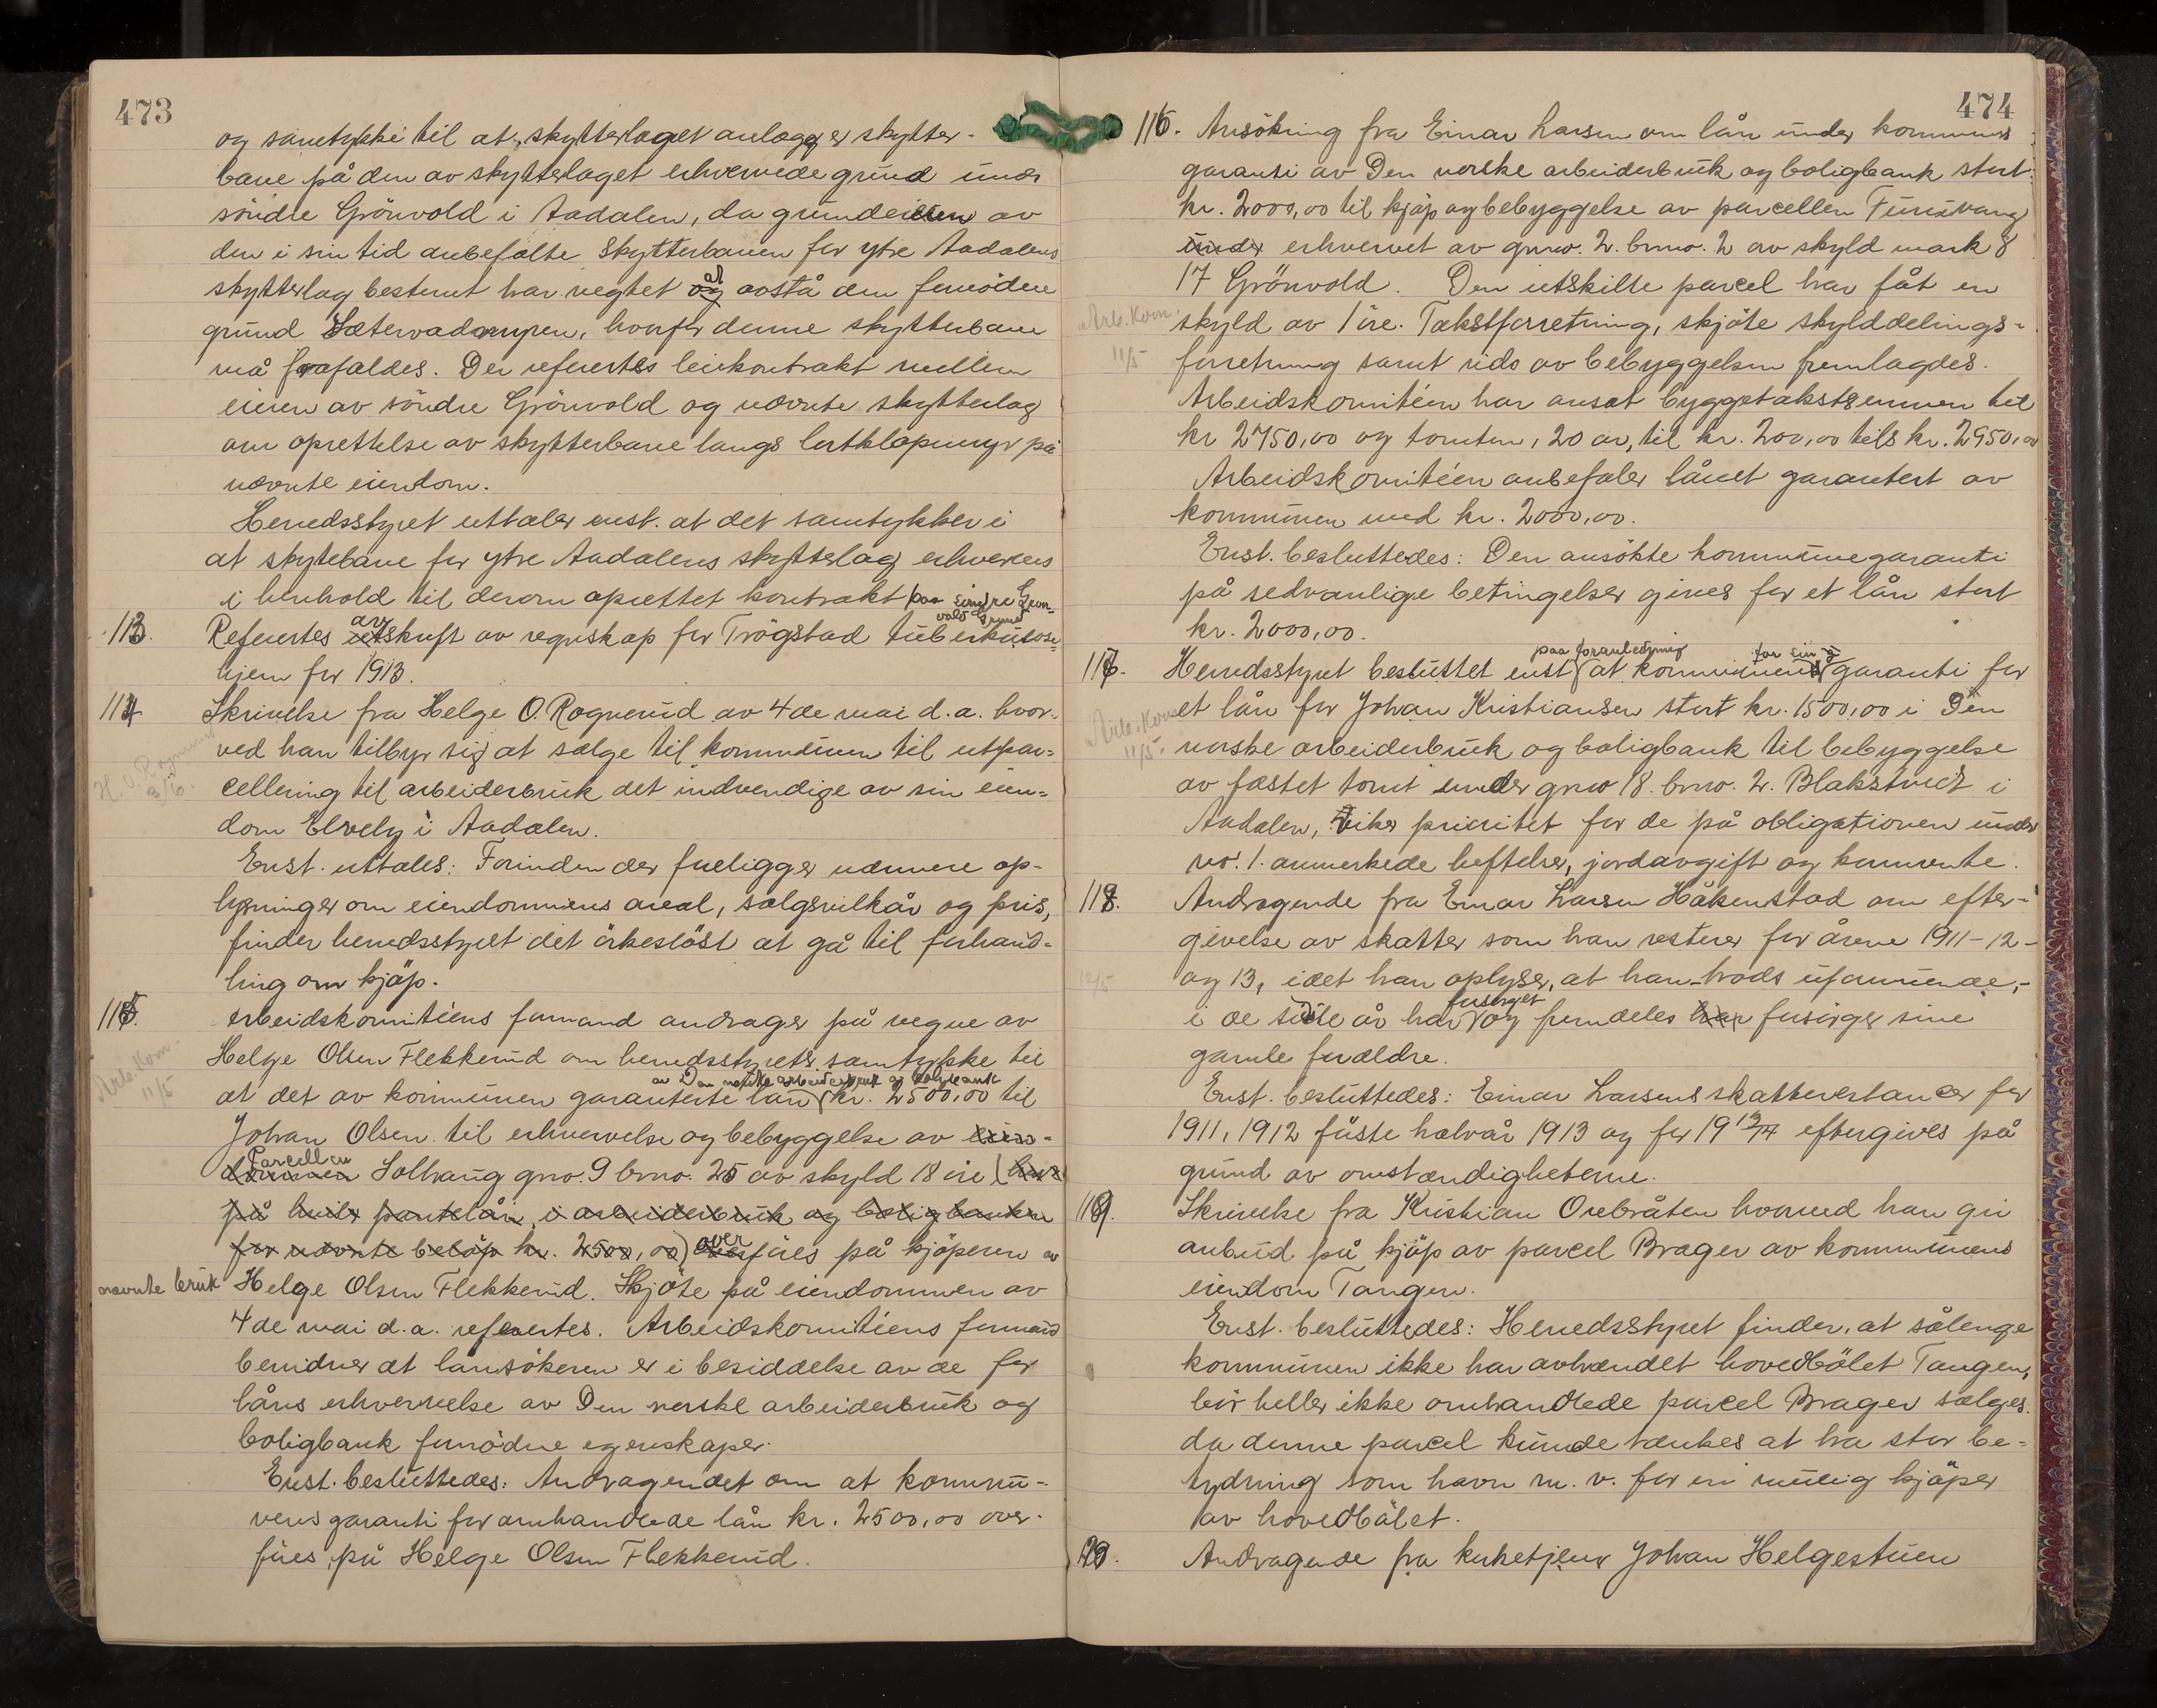 473
og samtykke til at skytterlaget anlægger skytter-
bane på den av skytterlaget erhvervede grund under
söndre Grönvold i Aadalen, da grundeieren av
den i sin tid anbefalte skytterbanen for ytre Aadalens
skytterlag bestemt har vegtet at avstå den fornödne
grund Sætervadmyren, hvorfor denne skytterbane
må frafaldes. Der refertes leiekontrakt mellem
eieren av söndre Grönvold og nævnte skytterlag
om oprettelse av skytterbane langs på
nævnte eiendom.
Herredsstyret uttaler enst. at det samtykker i
at skytebane for ytre Aadalens skytterlag erhverves
i henhold til derom oprettet kontrakt paa söndre Grön-
vold grund
113. Refertes avskrift av regnskap for Trögstad tuberkulose-
hjem for 1913.
114 Skrivelse fra Helge O. Rognerud av 4de mai d.a. hvor-
ved han tilbyr sig at sælge til kommunen til utpar-
cellering til arbeiderbruk det indvendige av sin eien-
dom Elvely i Aadalen.
Enst. uttales: Forinden der foreligger nærmere op-
lysninger om eiendommens areal, salgsvilkår og pris,
finder herredsstyret det örkeslöst at gå til forhand-
ling om kjöp.
115. Arbeidskomitéens formand andrager på vegne av
Arb.Kom. 11/5
Helge Olsen Flekkerud om herredsstyrets samtykke til
av Den norske arbeiderbruk og boligbank
at det av kommunen garanterte lån kr. 2500,00 til
Johan Olsen til erhvervelse og bebyggelse av eien-
Parcellen
dommen Solhaug gno. 9 brno. 25 av skyld 18 öre (hvor
på hviler pantelån i arbeiderbruk og boligbanken
for nævnte belöp kr. 2500,00) overföres på kjöperen av
nævnte bruk Helge Olsen Flekkerud. Skjöte på eiendommen av
4de mai d.a. refertes. Arbeidskomitéens formand
bevidner at lånsökeren er i besiddelse av de for
låns erhvervelse av Den norske arbeiderbruk og
boligbank fornödne egenskaper.
Enst. besluttedes: Andragendet om at kommu-
nens garanti for omhandlede lån kr. 2500,00 over-
föres på Helge Olsen Flekkerud.
474
116. Ansökning fra Einar Larsen om lån under kommunens
garanti av Den norske arbeiderbruk og boligbank stort
kr. 2000,00 til kjöp og bebyggelse av parcellen Furuvang
under erhvervet av gnro. 2. brno. 2 av skyld mark 8
17 Grönvold. Den utskilte parcel har fåt en
Arb.Kom. 11/5
skyld av 1 öre. Takstforretning, skjöte skylddelings-
forretning samt rids av bebyggelsen fremlagdes.
Arbeidskomitéen har ansat byggetakstsummen til
kr 2750,00 og tomten, 20 ar, til kr. 200,00 tils kr. 2950,00
Arbeidskomitéen anbefaler lånet garantert av
kommunen med kr. 2000,00.
Enst. besluttedes: Den ansökte kommunegaranti
på sedvanlige betingelser gives for et lån stort
kr. 2000,00.
paa foranledning for sin
117. Herredsstyret besluttet enst at kommunens garanti for
Arb.Kom 11/5.
et lån for Johan Kristiansen stort kr. 1500,00 i Den
norske arbeiderbruk og boligbank til bebyggelse
av fæstet tomt under gnro 18. brno. 2. Blakstvedt i
Aadalen, viker prioritet for de på obligationen under
no. 1. anmerkede heftelser, jordavgift og kaarrente.
118. Andragende fra Einar Larsen Håkenstad om efter-
givelse av skatter som han resterer for årene 1911-12-
12/5
og 13, idet han oplyser, at han trods uformuende,-
forsörget
i de siste år har og fremdeles han forsörger sine
gamle forældre.
Enst. besluttedes: Einar Larsens skatterestancer for
1911, 1912 förste halvår 1913 og for 1913/14 eftergives på
grund av omstændigheterne.
119. Skrivelse fra Kristian Orebråten hvorved han gir
anbud på kjöp av parcel Brager av kommunens
eiendom Tangen.
Enst. besluttedes: Herredsstyret finder, at sålenge
kommunen ikke har avhændet hovedbölet Tangen,
bör heller ikke omhandlede parcel Brager sælges.
da denne parcel kunde tænkes at ha stor be-
tydning som havn m. v. for en mulig kjöper
av hovedbölet.
120. Andragende fra kirketjener Johan Helgestuen